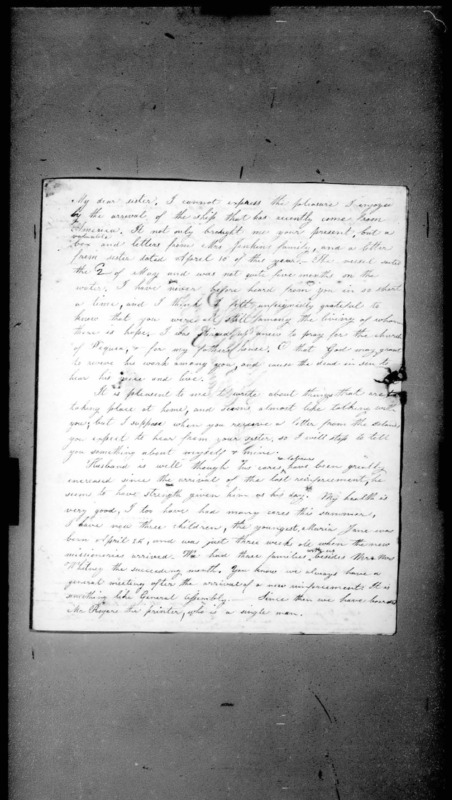 My dear sister, I cannot express the pleasure I enjoyed
by the arrival of the ship that has recently come from
American. It not only brought me your present, but a
valuable
box and letters from Mrs Jenkins family, and a letter
from sister dated April 10 of this year. The vessel sailed
the 2 of May and was not quite five months on the
water. I have never before heard from you in so short
a time, and I think I felt unfeignedly grateful to
know that you were all still among the living of whom
there is hope. I do to pray for the church
of Pequea, & for my fathers house. O that God may grant
to revive his work among you, and cause the dead in sin to
hear his voice and live.
It is pleasent to me to write about things that are
taking place at home, and seems almost like talking with
you, but I suppose when you receive a letter from the
you expect to hear from your sister, so I will stop to tell
you something about myself & mine.
& labours
Husband is well though his cares have been greatly
encreased since the arrival of the last reinforcement, he
seems to have strength given him as his day. My health is
very good, I too have had many cares this summer,
I have now three children, the youngest Maria Jane was
born April 24, and was just three weeks old when the new
missionaries arrived. We had three families with us besides Mrs
Whitney the succeeding month. You know we always have a
general meeting after the arrival of a new reinforcement. It is
something like General Assembly. Since then we have
Mr Rogers the printer, who is a single man.